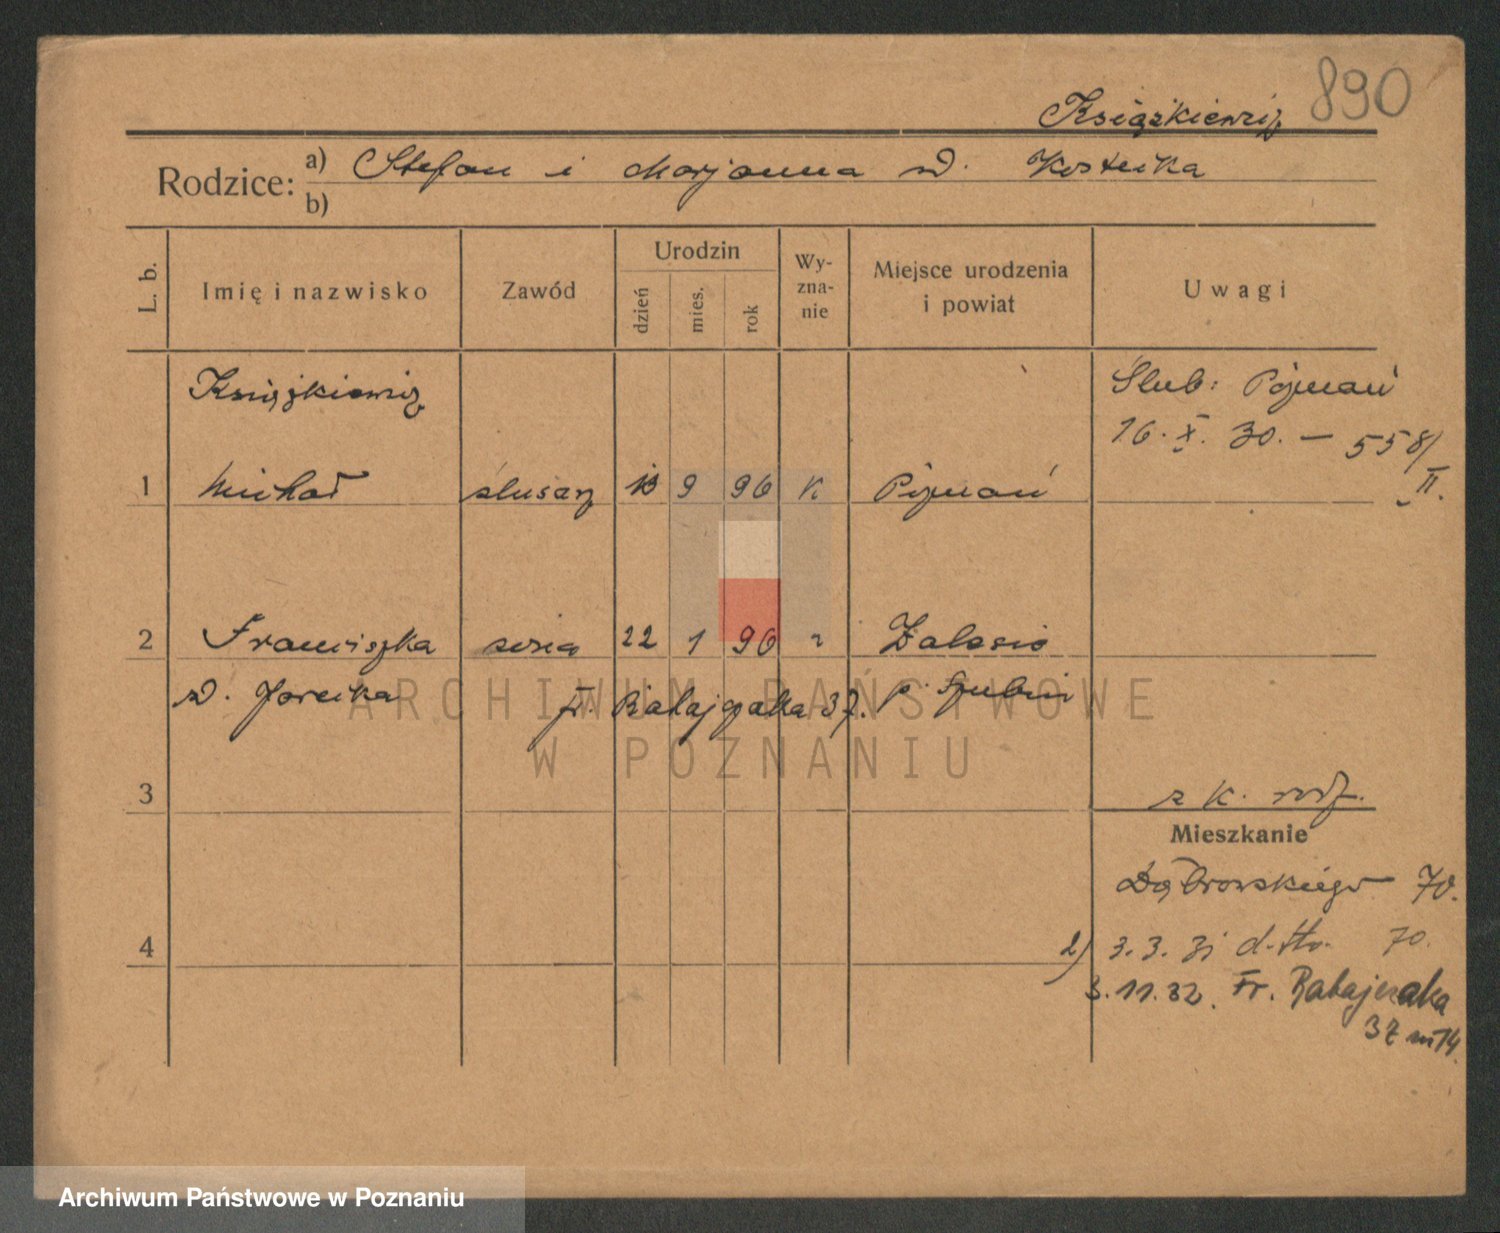 890
Książkiewicz
Rodzice: a) Stefan i Marjanna d. Kostuka
b)
L. b.
Imię i nazwisko
Zawód
Urodzin
dzień
mies.
rok
Wy-
zna-
nie
Miejsce urodzenia
i powiat
Uwagi
Książkiewicz
Ślub: Poznań
16. X. 30. — 558/
II.
1 Michał ślusarz 9 96 K Poznań
2 Franciszka żona 22 1 96 " Zalesie
d. Fr. Ratajczaka 37. p. Szubin
3
z k. rodz.
Mieszkanie
Dąbrowskiego 70.
4
2) 3.3.31 d-tto. 70.
3.11.32. Fr. Ratajczaka
37 m 14.
ARCHIWUM PAŃSTWOWE
W POZNANIU
Archiwum Państwowe w Poznaniu